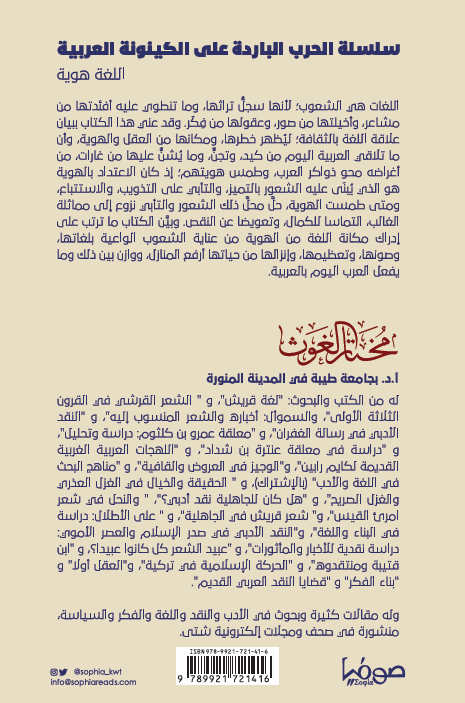 سلسلة الحرب الباردة على الكينونة العربية
اللغة هوية
اللغات هي الشعوب؛ لأنها سجلُّ تراثها، وما تنطوي عليه أفئدتها من
مشاعر، وأخيلتها من صور، وعقولها من فِكَر. وقد عني هذا الكتاب ببيان
علاقة اللغة بالثقافة؛ ليُظهر خطرها، ومكانها من العقل والهوية، وأن
ما تلاقي العربية اليوم من كيد، وتجنٍّ، وما يُشنُّ عليها من غارات، من
أغراضه محو ذواكر العرب، وطمس هويتهم؛ إذ كان الاعتداد بالهوية
هو الذي يُبنَى عليه الشعور بالتميز، والتأبي على التذويب، والاستتباع،
ومتى طمست الهوية، حلَّ محلَّ ذلك الشعور والتأبي نزوع إلى مماثلة
الغالب، التماسا للكمال، وتعويضا عن النقص. وبيَّن الكتاب ما ترتب على
إدراك مكانة اللغة من الهوية من عناية الشعوب الواعية بلغاتها،
وصونها، وتعظيمها، وإنزالها من حياتها أرفع المنازل، ووازن بين ذلك وما
يفعل العرب اليوم بالعربية.
مختار الغوث
أ.د. بجامعة طيبة في المدينة المنورة
له من الكتب والبحوث: "لغة قريش"، و " الشعر القرشي في القرون
الثلاثة الأولى"، والسموأل: أخباره والشعر المنسوب إليه"، و "النقد
الأدبي في رسالة الغفران"، و "معلقة عمرو بن كلثوم: دراسة وتحليل"،
و "دراسة في معلقة عنترة بن شداد"، و "اللهجات العربية الغربية
القديمة لكايم رابين"، و"الوجيز في العروض والقافية"، و "مناهج البحث
في اللغة والأدب" (بالإشتراك)، و " الحقيقة والخيال في الغزل العذري
والغزل الصريح"، و "هل كان للجاهلية نقد أدبي؟"، " والنحل في شعر
امرئ القيس"، و" شعر قريش في الجاهلية"، و " على الأطلال: دراسة
في البناء واللغة"، و"النقد الأدبي في صدر الإسلام والعصر الأموي:
دراسة نقدية للأخبار والمأثورات"، و "عبيد الشعر كل كانوا عبيدا؟، و "ابن
قتيبة ومنتقدوه"، و "الحركة الإسلامية في تركية"، و"العقل أولا" و
"بناء الفكر" و "قضايا النقد العربي القديم".
وله مقالات كثيرة وبحوث في الأدب والنقد واللغة والفكر والسياسة،
منشورة في صحف ومجلات إلكترونية شتى.
ISBN 978-9921-721-41-6
9 789921 721416
@sophia_kwt
info@sophiareads.com
صوفيا
Σοφία